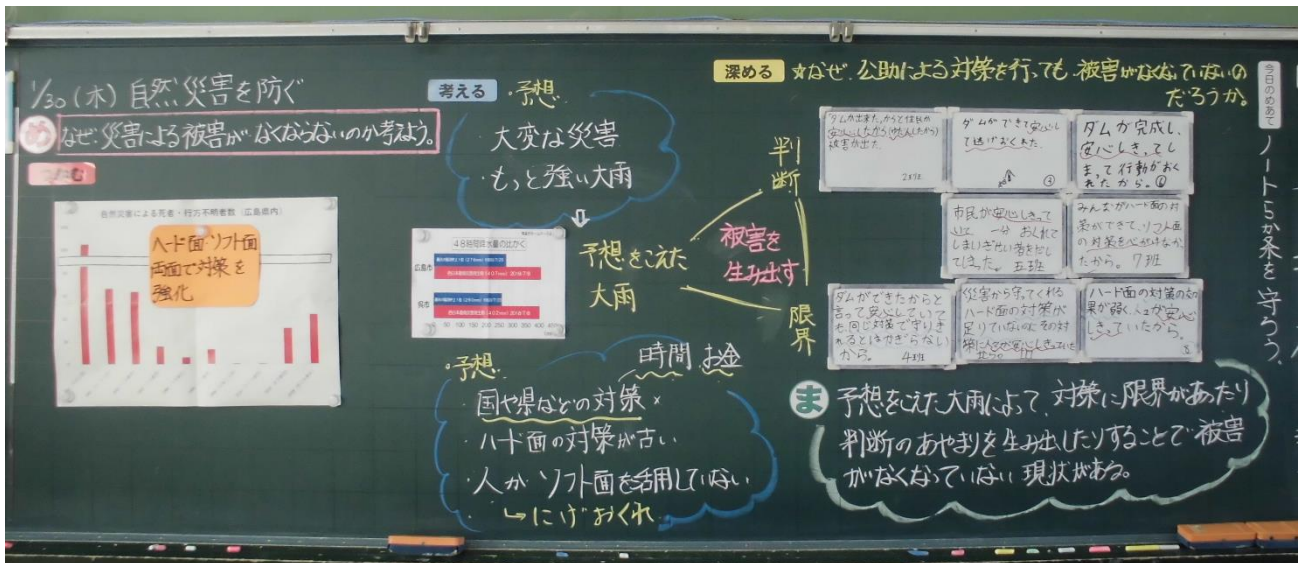 1/30(木) 自然災害を防ぐ
め なぜ、災害による被害が なくならないのか考えよう。
つかむ
自然災害による死者・行方不明者数(広島県内)
ハード面・ソフト面
両面で対策を
強化
考える ・予想
・大変な災害
・もっと強い大雨
⇩
48時間降水量の比かく
広島市
呉市
0 50 100 150 200 250 300 350 400 450
予想をこえた
大雨
判断
被害を
生み出す
限界
・予想
時間 お金
・国や県などの対策 ×
・ハード面の対策が古い
・人が ソフト面を活用していない
↳にげおくれ
深める ☆なぜ、公助による対策を行っても 被害がなくなっていないの
だろうか。
ダムが出来たからと住民が
安心したから
被害が出た
2班
ダムができて安心し
て逃げおくれた。
ダムが完成し、
安心しきってし
まって行動がおく
れたから。⑥
市民が安心しきって
しまいぎせい者をだし
てしまった。 五班
みんながハード面の対
策ができて、ソフト面
の対策を心がけなか
ったから。 7班
ダムができたからと
言って安心していて
も、同じ対策で守りき
れるとはかぎらない
から。 4班
災害から守ってくれる
ハード面の対策が
足りていないのにその対
ハード面の対策の効
果が弱く、人々が安心
しきっていたから。
ま 予想をこえた大雨によって、対策に限界があったり
判断のあやまりを生み出したりすることで被害
がなくなっていない 現状がある。
今日のめあて
ノート5か条を守ろう。